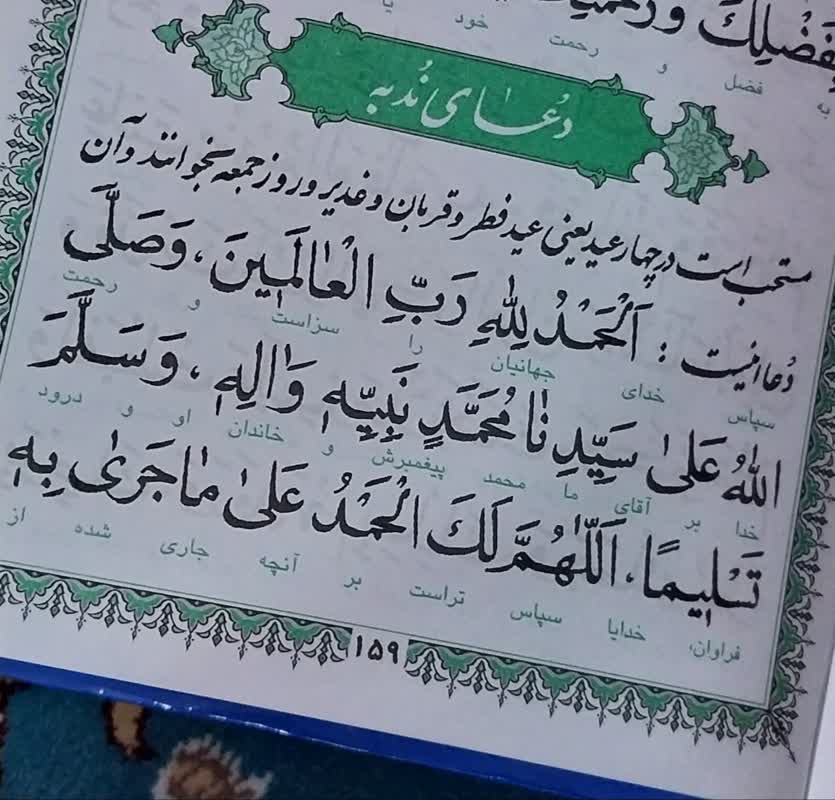 بِفَضْلِكَ وَرَحْمَتِكَ
به فضل و رحمت خود
دُعای نُدبه
مستحب است در چهار عید یعنی عید فطر و قربان و غدیر و روز جمعه بخوانند و آن
دُعا اینست : اَلْحَمْدُ لِلّٰهِ رَبِّ الْعٰالَمینَ، وَصَلَّی
سپاس خدای جهانیان را سزاست و رحمت
اللهُ عَلیٰ سَیِّدِنٰا مُحَمَّدٍ نَبِیِّهِ وَاٰلِهِ، وَسَلَّمَ
خدا بر آقای ما محمد پیغمبرش و خاندان او و درود
تَسْلیمًا، اَللّٰهُمَّ لَكَ الْحَمْدُ عَلیٰ مٰا جَریٰ بِهِ
فراوان، خدایا سپاس تراست بر آنچه جاری شده از
۱۵۹